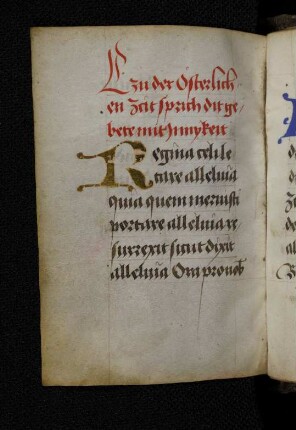 Czu der Osterlich
en Zcit sprich dit ge
bete mit Innykeit
Regina celi le
tare alleluia
quia quem meruisti
portare alleluia re
surrexit sicut dixit
alleluia Ora pro nob